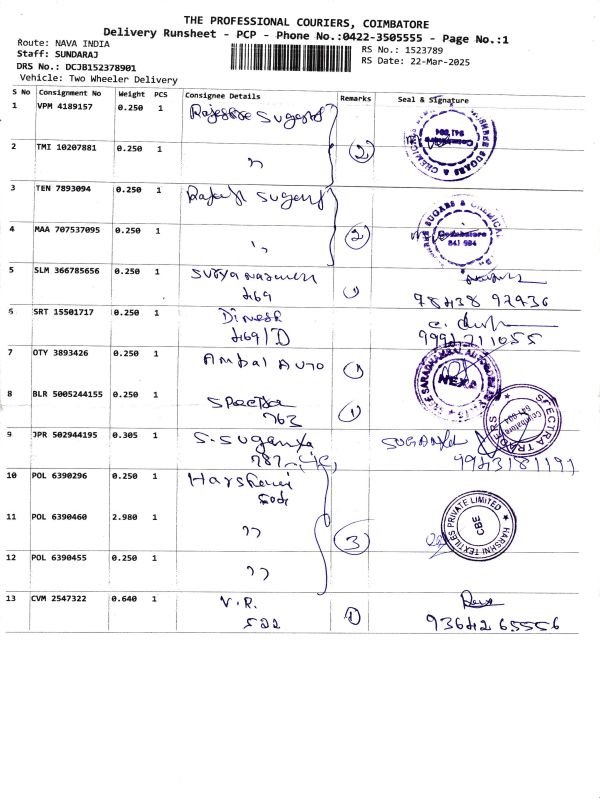 THE PROFESSIONAL COURIERS, COIMBATORE
Delivery Runsheet - PCP - Phone No.:0422-3505555 - Page No.:1
Route: NAVA INDIA
Staff: SUNDARAJ
DRS No.: DCJB152378901
Vehicle: Two Wheeler Delivery
RS No.: 1523789
RS Date: 22-Mar-2025
S No Consignment No Weight PCS Consignee Details Remarks Seal & Signature
1 VPM 4189157 0.250 1
2 TMI 10207881 0.250 1 " 2
3 TEN 7893094 0.250 1
4 MAA 707537095 0.250 1 " 2
5 SLM 366785656 0.250 1 1
469
6 SRT 15501717 0.250 1 Dinesh
469/D
7 OTY 3893426 0.250 1 Ambal Auto 1
NEXA
8 BLR 5005244155 0.250 1 Spectra 1
763
SPECTRA TRADERS
Coimbatore
9 JPR 502944195 0.305 1 S. Suganya
787
9943181191
10 POL 6390296 0.250 1
11 POL 6390460 2.980 1 " 3
HARSHNI TEXTILES PRIVATE LIMITED
CBE
12 POL 6390455 0.250 1 "
13 CVM 2547322 0.640 1 V.R. 1
522
9364265556